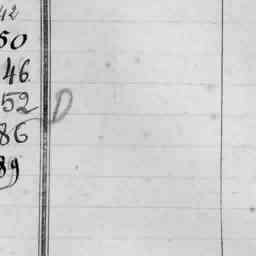 42
50
46
52 D
86
89